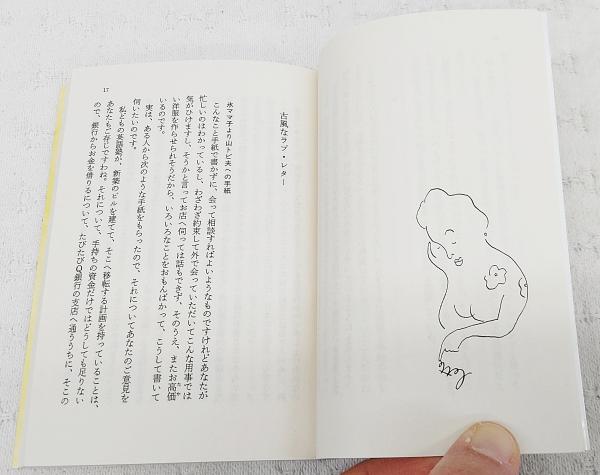 古風なラブ・レター
氷ママ子より山トビ夫への手紙
こんなこと手紙で書かずに、会って相談すればよいようなものですけれどあなたが
忙しいのはわかっているし、わざわざ約束して外で会っていただいてこんな用事では
気がひけますし、そうかと言ってお店へ伺っては話もできず、そのうえ、またお高価
たか
い洋服を作らせられそうだから、いろいろなことをおもんぱかって、こうして書いて
いるのです。
実は、ある人から次のような手紙をもらったので、それについてあなたのご意見を
伺いたいのです。
私どもの英語塾が、新築のビルを建てて、そこへ移転する計画を持っていることは、
あなたもご存じですわね。それについて、手持ちの資金だけではどうしても足りない
ので、銀行からお金を借りるについて、たびたびQ銀行の支店へ通ううちに、そこの
17